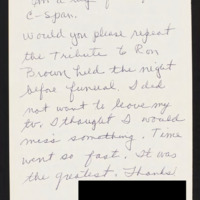 C-Span.
Would you please repeat
the Tribute to Ron
Brown held the night
before funeral. I did
not want to leave my
tv. I thought I would
miss something. Time
went so fast. It was
the greatest. Thanks